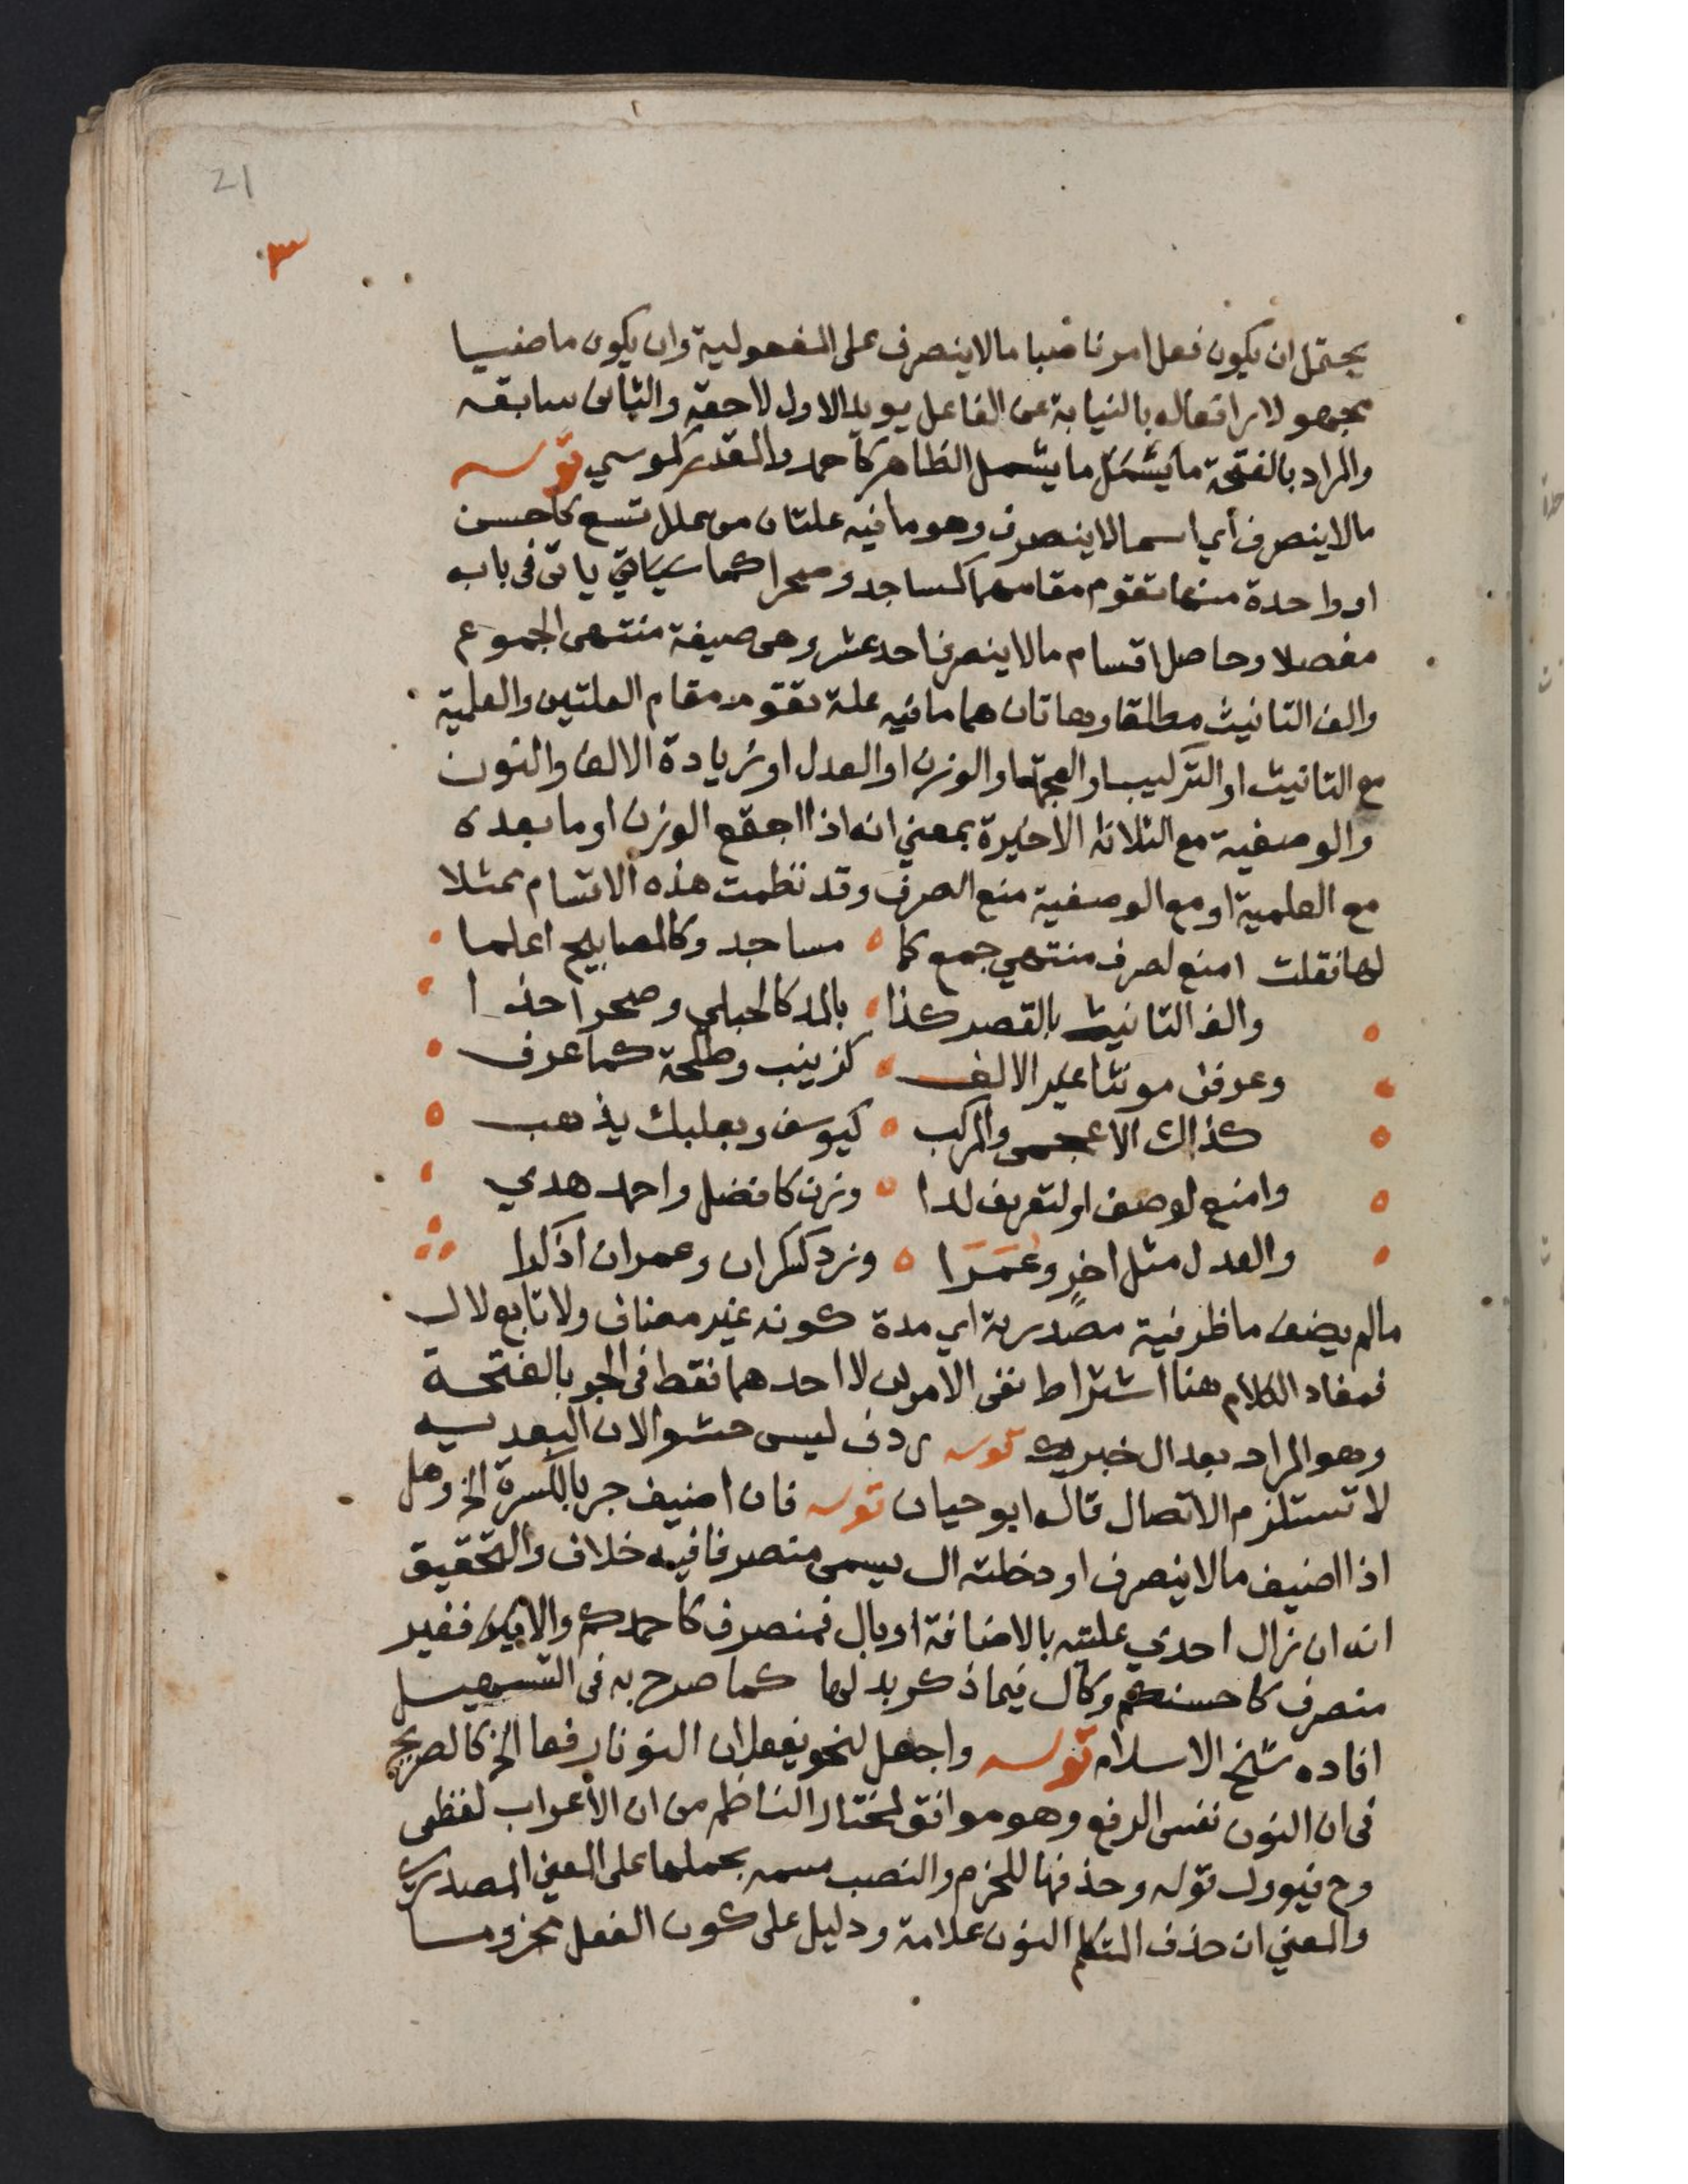 21
٣
يحتمل ان يكون فعل امر ناصبا ما لا ينصرف على المفعولية وان يكون ماضيا
مجهولا رافعا له بالنيابة عن الفاعل يويد الاول لاحقه والثانى سابقه
والمراد بالفتحة ما يشمل ما يشمل الظاهر كاحمد والمقدر كموسي قوله
ما لا ينصرف أي اسما لا ينصرف وهو ما فيه علتان من علل تسع كاحسن
او واحدة منها تقوم مقامهما كمساجد وصحرا كما سياتي ياتى فى بابه
مفصلا وحاصل اقسام ما لا ينصرف احد عشر وهى صيغة منتهى الجموع
والف التانيث مطلقا وهاتان هما ما فيه علة تقوم مقام العلتين والعلمية
مع التانيث او التركيب او العجمة او الوزن او العدل او زيادة الالف والنون
والوصفية مع الثلاثه الاخيرة بمعني انه اذا اجتمع الوزن او ما بعده
مع العلمية او مع الوصفية منع الصرف وقد نظمت هذه الاقسام ممثلا
لها فقلت امنع لصرف منتهي جمع كما مساجد وكالمصابيح اعلما
والف التانيث بالقصر كذا بالمد كالحبلى وصحرا خذا
وعرفن مونثا غير الالف كزينب وطلحة كما عرف
كذاك الاعجمى والمركب كيوسف وبعلبك يذهب
وامنع لوصف او لتعريف لدا وزن كافضل واحمد هدي
والعدل مثل اخر وعمرا وزد كسكران وعمران اذكرا
ما لم يضف ما ظرفية مصدرية اي مدة كونه غير مضاف ولا تابع لال
فمفاد الكلام هنا اشتراط نفى الامرين لا احدهما فقط فى الجر بالفتحة
وهو المراد بعد ال خبريك قوله ردف ليس حشوا لان البعديه
لا تستلزم الاتصال قاله ابو حيان قوله فان اضيف جر بالكسرة الخ وهل
اذا اضيف ما لا ينصرف او دخلته ال يسمى منصرفا فيه خلاف والتحقيق
انه ان زال احدي علتيه بالاضافة او بال فمنصرف كاحمدكم والا فغير
منصرف كاحسنكم وكال فيما ذكر بدلها كما صرح به فى التسهيل
افاده شيخ الاسلام قوله واجعل لنحو يفعلان النونا رفعا الخ كالصريح
فى ان النون نفس الرفع وهو موافق لمختار الناظم من ان الاعراب لفظى
وح فيوول قوله وحذفها للجزم والنصب سمه بحملها على المعني المصدري
والمعني ان حذف المتكلم النون علامة ودليل على كون الفعل مجزوما